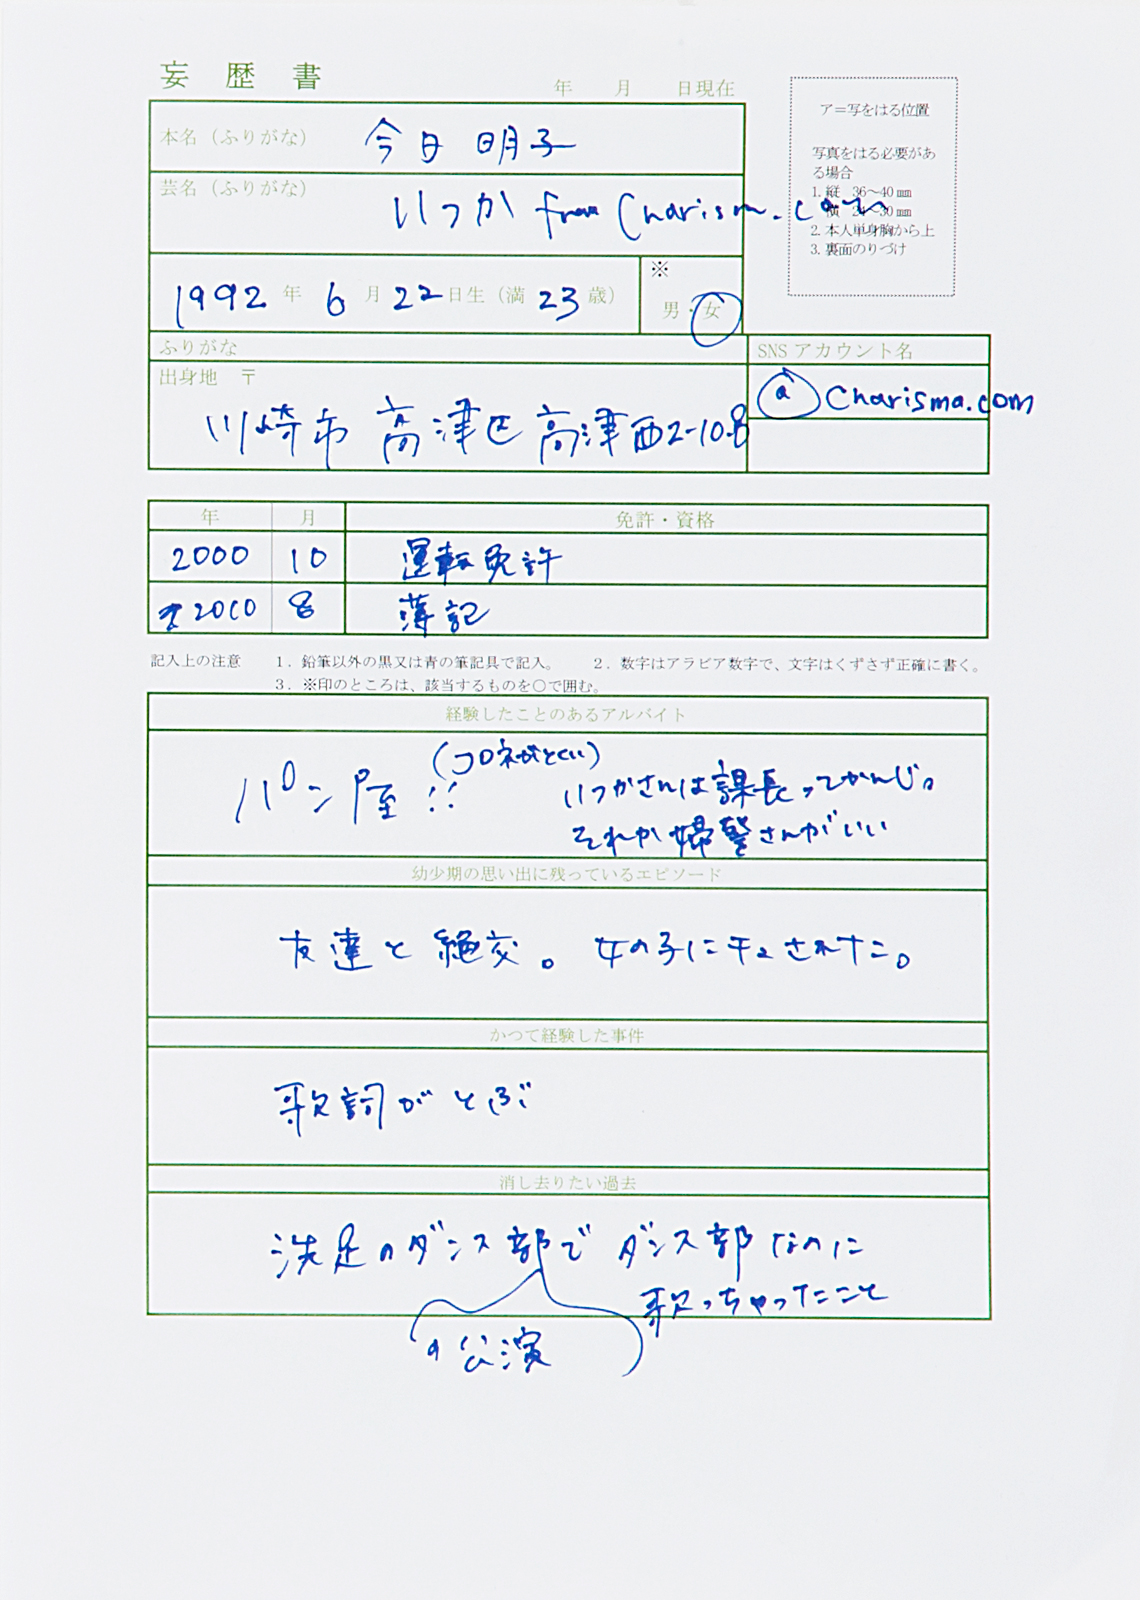 妄 歴 書
年 月 日現在
本名(ふりがな) 今日 明子
芸名(ふりがな) いつか from Charisma.com
1992 年 6 月 22 日生(満 23 歳)
※
男・女
ア=写をはる位置
写真をはる必要があ
る場合
1. 縦 36〜40㎜
横 24〜30㎜
2. 本人単身胸から上
3. 裏面のりづけ
ふりがな
出身地 〒
川崎市 高津区 高津西2-10-8
SNS アカウント名
@ Charisma.com
年 月 免許・資格
2000 10 運転免許
2010 8 薄記
記入上の注意 1.鉛筆以外の黒又は青の筆記具で記入。 2.数字はアラビア数字で、文字はくずさず正確に書く。
3.※印のところは、該当するものを○で囲む。
経験したことのあるアルバイト
パン屋!! (コロネがとくい)
いつかさんは課長ってかんじ。
それか婦警さんがいい
幼少期の思い出に残っているエピソード
友達と絶交。女の子にチュされた。
かつて経験した事件
歌詞がとぶ
消し去りたい過去
洗足のダンス部で ダンス部なのに
歌っちゃったこと
の公演